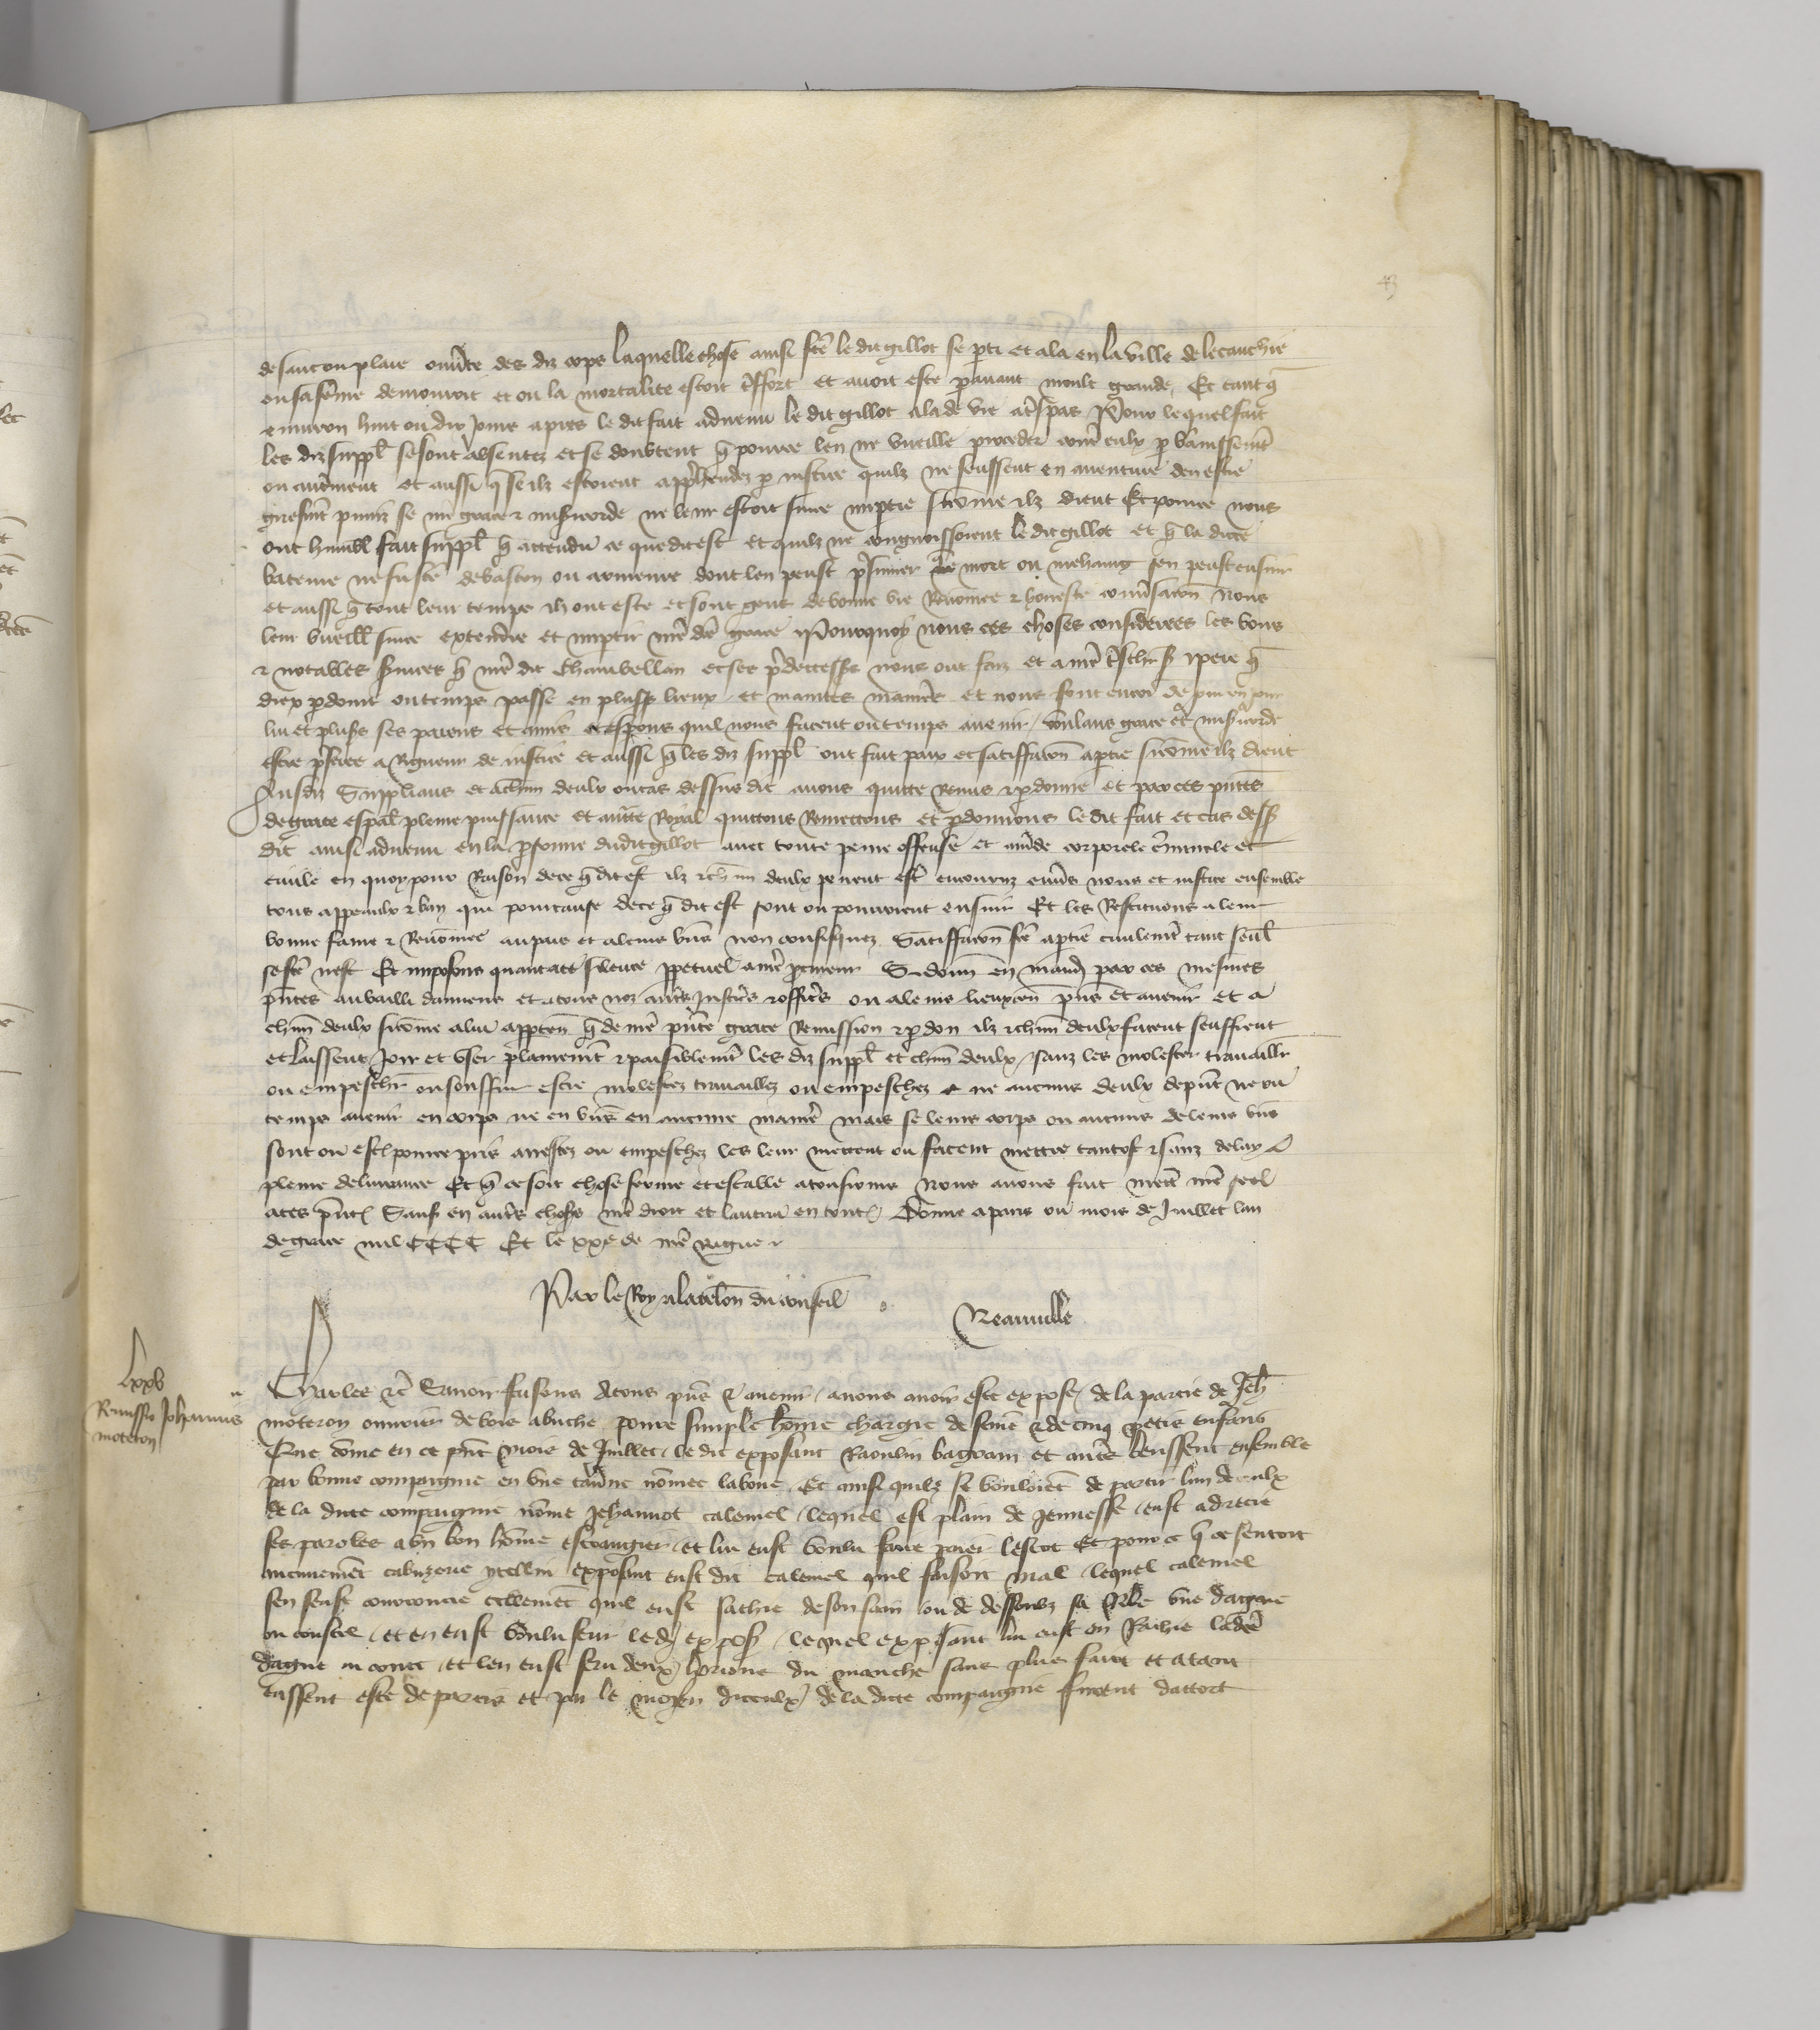 43
de sanc ou plaie ouverte des diz cops Laquelle chose ainsi fce le dit gillot se pti et ala en la ville de lecauchie
ou sa feme demouroit et ou la mortalite estoit et avoit este pavant moult grande, Et tant q
environ huit ou dix jours apres le dit fait advenu le dit gillot ala de vie a tspas Pour lequel fait
les diz suppl se sont absentez et se doubtent q pource len ne vueille proceder contre eulx p banissemt
ou autrement et aussi q se ilz estoient apphendez p justice quilz ne feussent en aventure den estre
griefmt puniz se nre grace & misericorde ne leur estoit sur ce impartie si comme ilz dient Et pource nous
ont humbl fait suppl q attendu ce que dit est et quilz ne congnoissoient le dit gillot et q la dicte
bateure ne fu fce de baston ou armeure dont len peust psumer que mort ou mehaing sen peust ensuir
et aussi q tout leur temps ilz ont este et sont gens de bonne vie Renommee & honeste conversacon Nous
leur vueill sur ce extendre et impartir nre dce grace Pourquoy nous ces choses considerees les bons
& notables services q nre dit Chambellan et ses pdecesss nous ont faiz et a nre treschr s pere q
diex pdoint ou temps passe en plusrs lieux et maintes manieres et nous font encor de jour en jour
lui et plusrs ses parens et amis et esperons quil nous facent ou temps avenir / voulans grace et misericorde
estre pferee a Rigueur de justice et aussi q les diz suppl ont fait paix et satiffacon a partie si comme ilz dient
Ausdiz Supplians et a chun deulx ou cas dessus dit avons quicte Remis & pdonne et par ces pntes
de grace espal pleine puissance et aucte Royal quictons Remectons et pdonnons le dit fait et cas dess
dit ainsi advenu en la psonne dudit gillot avec toute peine offense et amde corporele criminele et
civile en quoy pour Raison de ce q dit est ilz & chun deulx peuent estre encouruz envers nous et justice ensemble
tous appeaulx & ban qui pour cause de ce q dit est sont ou pourroient ensuir Et les Restituons a leur
bonne fame & Renommee au pais et a leurs biens non confisquez Satiffacon fce a partie civilemt tant seul
se fce nest Et imposons quant a ce silence ppetuel a nre pcureur Si donn en mand par ces mesmes
pntes au bailli damiens et a tous noz autres Justiciers & officiers ou a leurs lieuxten pns et avenir et a
chun deulx si comme a lui apptendra q de nre pnte grace Remission & pdon ilz & chun deulx facent seuffrent
et laissent Joir et user plainemt & paisiblemt les diz suppl et chun deulx, sanz les molester travaillr
ou empeschr ou souffrir estre molestez travaillez ou empeschez ne aucuns deulx depnt ne ou
temps avenir en corps ne en biens en aucune maniere mais se leurs corps ou aucuns de leurs biens
sont ou estoient pource pris arrestez ou empeschez les leur mettent ou facent mettre tantost & sanz delay a
pleine delivrance Et q ce soit chose ferme et estable a tousjours Nous avons fait mett nre seel
a ces pntes Sauf en autres choses nre droit et lautrui en toutes Donne a paris ou mois de Juillet lan
de grace mil CCCC Et le xxe de nre Regne
Par le Roy a la relon du conseil
Neauville
Lxxv
Remissio Johannis
moteron
Charles &c Savoir faisons a tous pns & avenir / a nous avoir este expose / de la partie de Jeh
moteron ouvrier de bois a buche povre simple home chargie de feme & de cinq petis enfans
Que come en ce pnt mois de Juillet / le dit exposant Raoulin bagrain et autrs beussent ensemble
par bonne compaignie en une taverne nomee labone Et ainsi quilz se vouloiet de partir lun deeulx
de la dicte compaignie nome Jehannot calemel / lequel est plain de Jeunesse / eust adrecie
ses paroles a un bon home estrangier / et lui eust voulu faire paier lescot Et pour ce q ce sentoit
aucunement cabuzerie ycellui exposant eust dit calemel quil faisoit mal / lequel calemel
sen feust courroucie tellement quil eust sachie de son sain ou de dessoubz sa Robe une dague
ou coustel / et en eust voulu ferir led expos / lequel exposant lui eust en Sachie ladce
dague / et len eust feru deux horions du manche sans plus faire et atant
eussent este departis et par le moyen diceulx de la dicte compaignie furent dattort